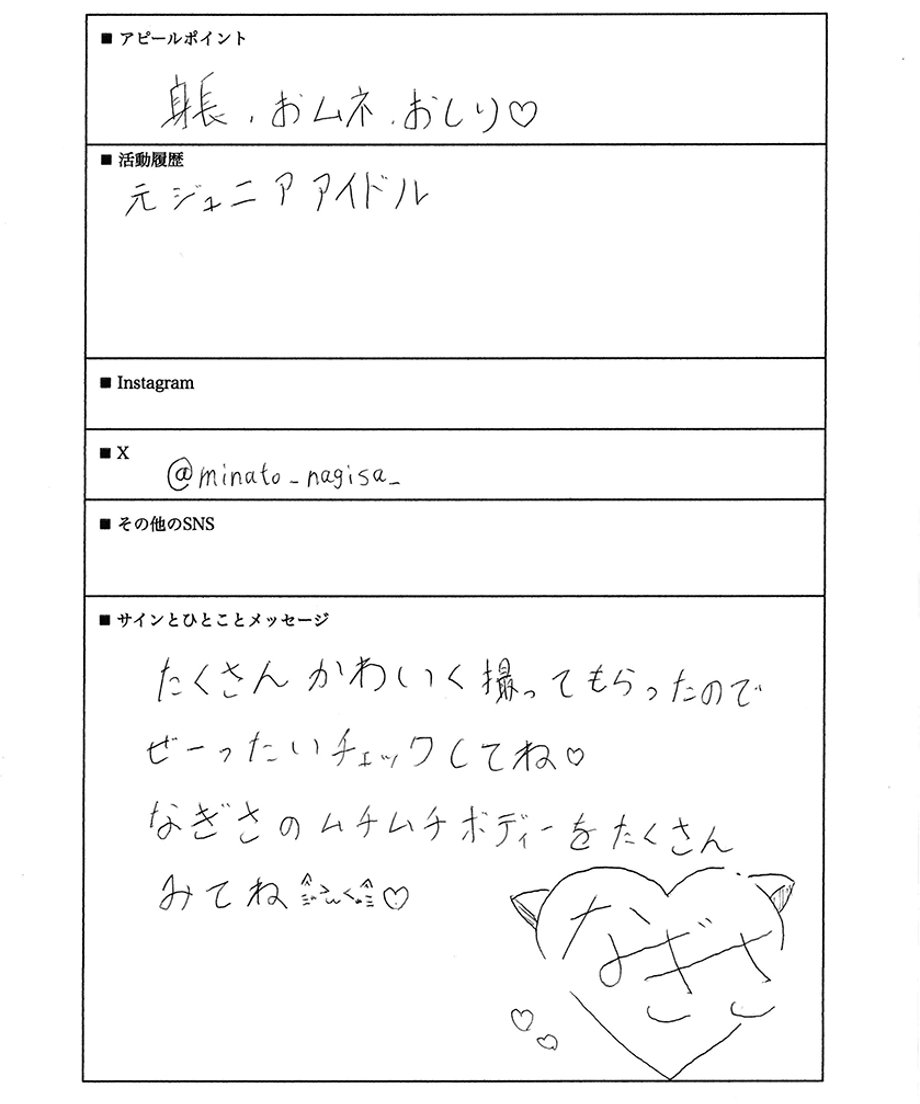 ■ アピールポイント
身長、おムネ、おしり♡
■ 活動履歴
元ジュニアアイドル
■ Instagram
■ X
@minato_nagisa_
■ その他のSNS
■ サインとひとことメッセージ
たくさんかわいく撮ってもらったので
ぜーったいチェックしてね♡
なぎさのムチムチボディーをたくさん
みてね♡
なぎさ